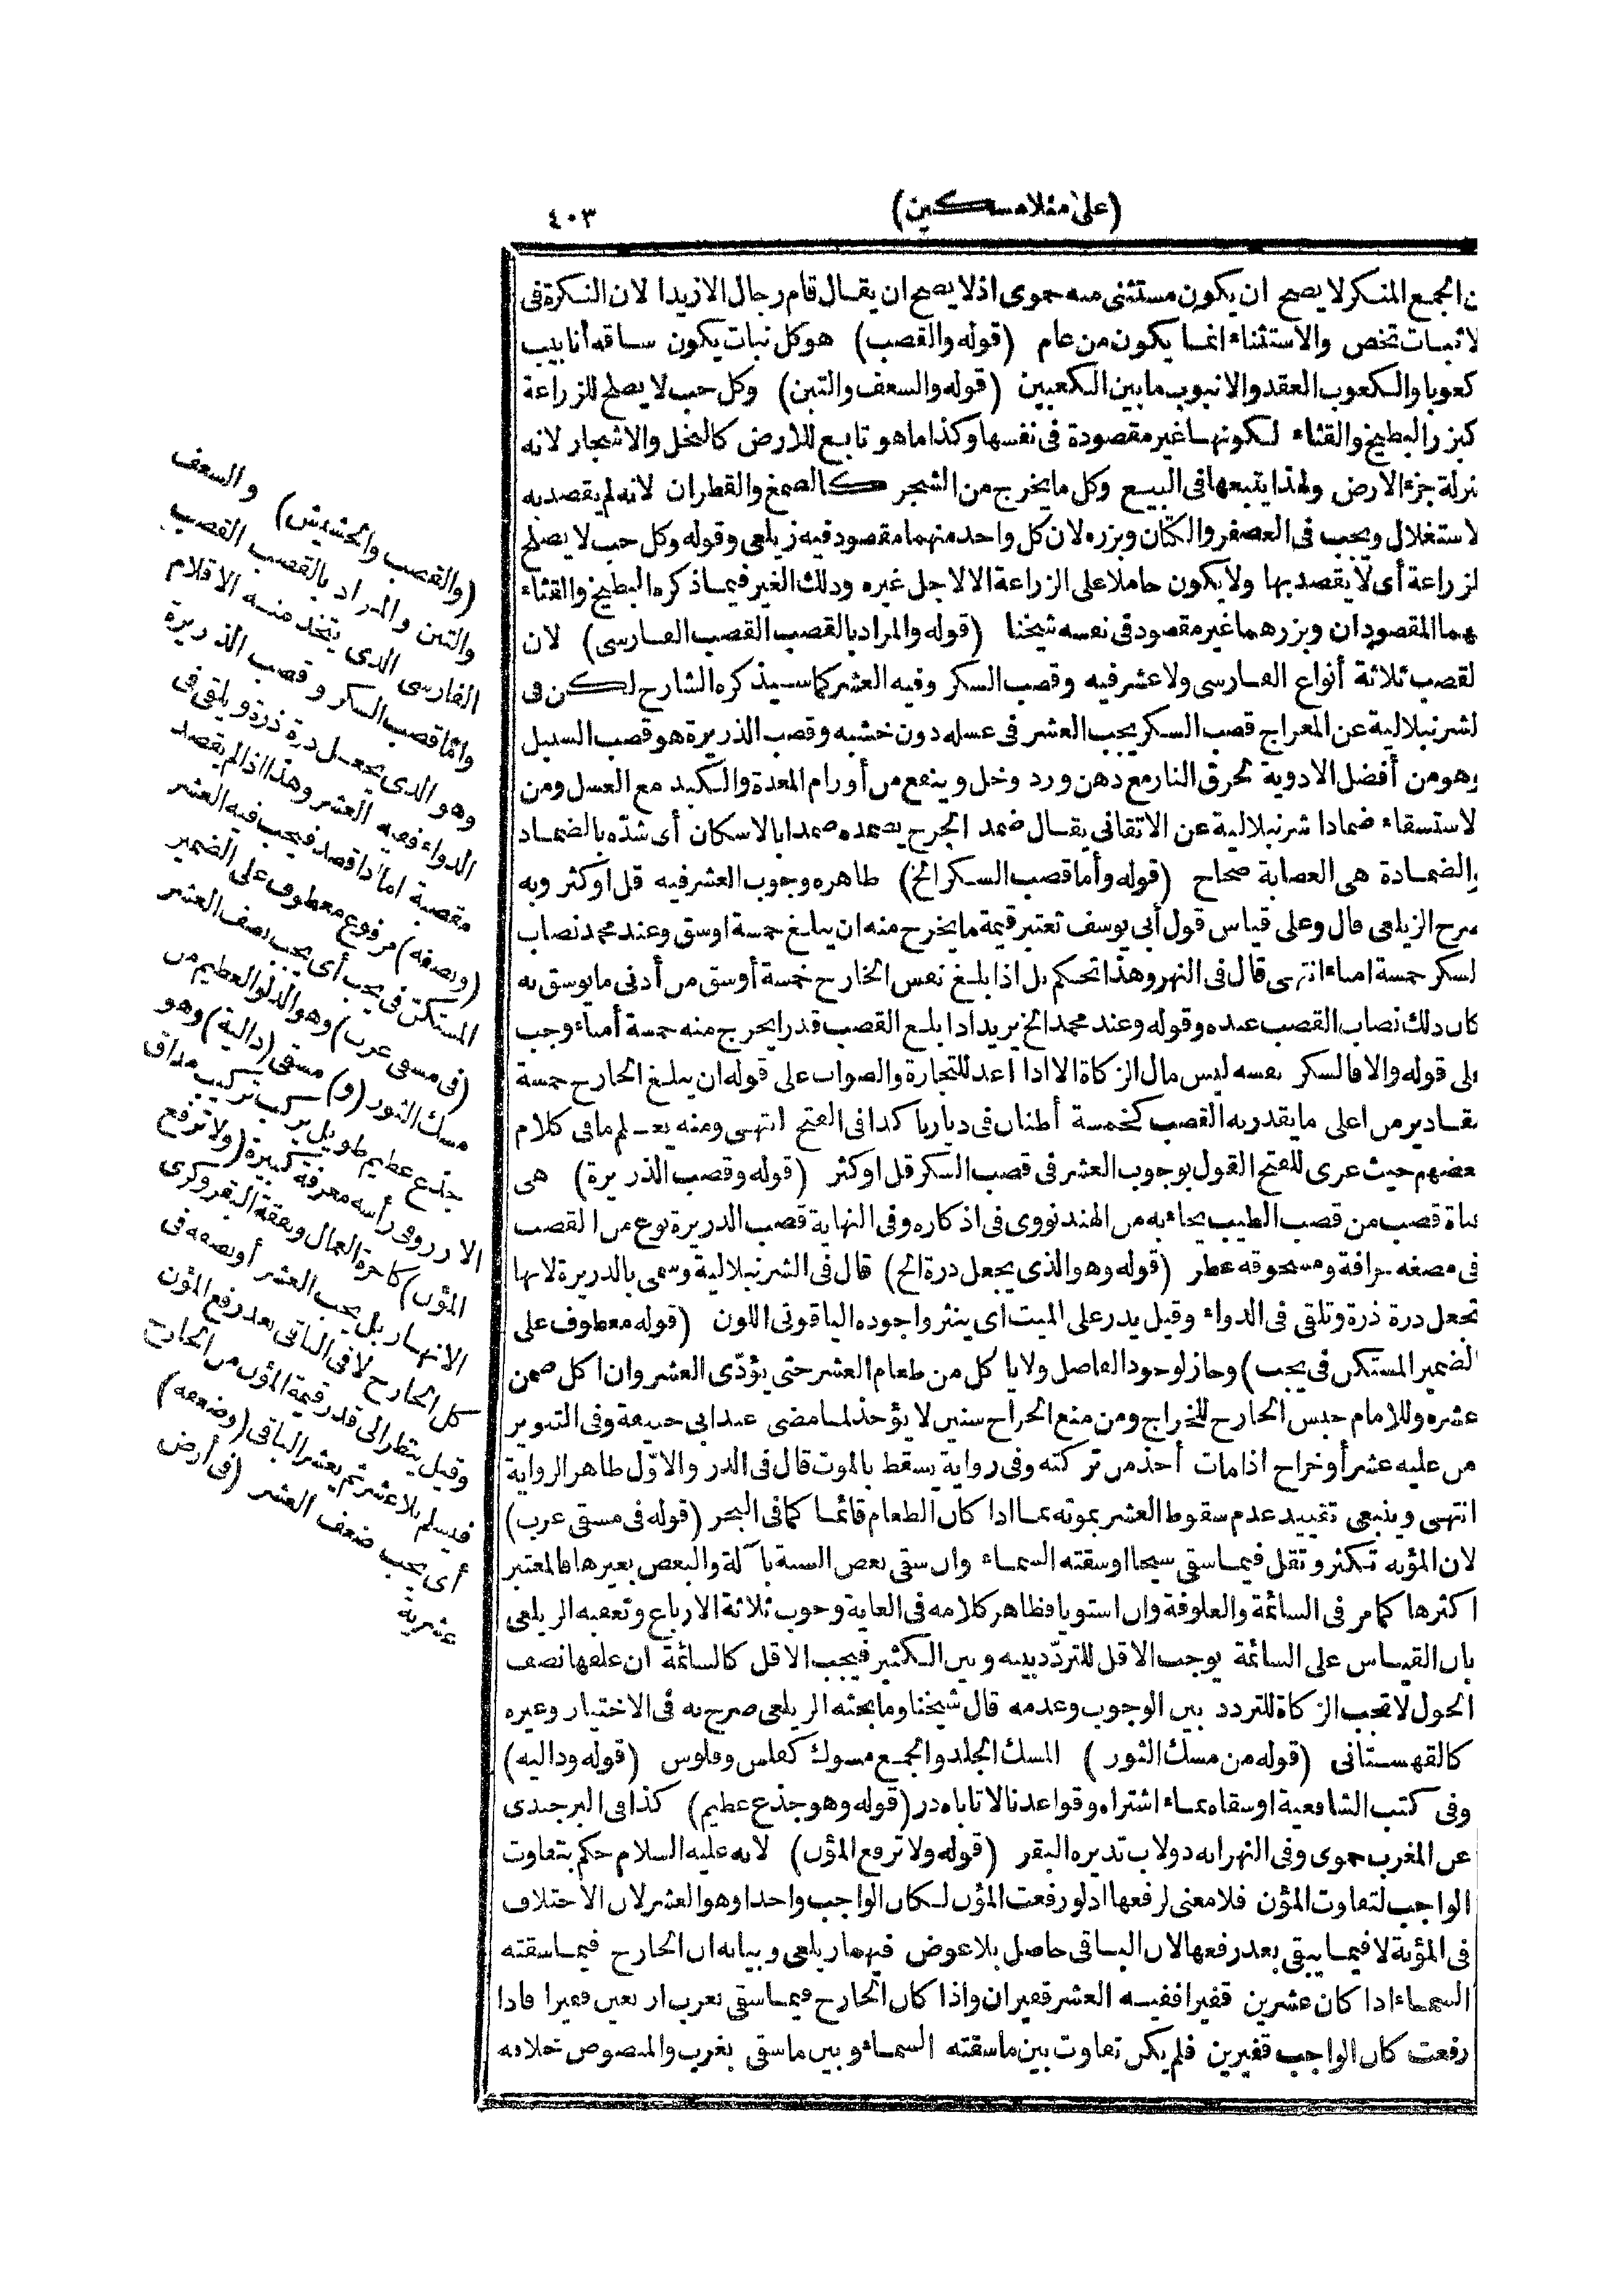 (على منلامسكين) ٤٠٣
ن الجمع المنكر لا يصح ان يكون مستثنى منه حموى اذلا يصح ان يقال قام رجال الازيدا لان النكرة فى
لاثبات تخص والاستثناء انما يكون من عام (قوله والقصب) هوكل نبات يكون ساقه أنابيب
كعوبا والكعوب العقد والانبوب ما بين الكعبين (قوله والسعف والتبن) وكل حب لا يصلح للزراعة
كبزر البطيخ والقثاء لكونها غير مقصودة فى نفسها وكذا ما هو تابع للارض كالنخل والاشجار لانه
نزلة جزء الارض ولهذا يتبعها فى البيع وكل ما يخرج من الشجر كالصمغ والقطران لانه لم يقصد به
لاستغلال ويجب فى العصفر والكتان وبزره لان كل واحد منهما مقصود فيه زيلعى وقوله وكل حب لا يصلح
لزراعة أى لا يقصد بها ولا يكون حاملا على الزراعة الا لاجل غيره وذلك الغير فيما ذكره البطيخ والقثاء
هما المقصودان وبزرهما غير مقصود فى نفسه شيخنا (قوله والمراد بالقصب القصب الفارسى) لان
لقصب ثلاثة أنواع الفارسى ولا عشر فيه وقصب السكر وفيه العشر كما سيذكره الشارح لكن فى
لشرنبلالية عن المعراج قصب السكر يجب العشر فى عسله دون خشبه وقصب الذريرة هو قصب السنبل
وهو من أفضل الادوية لحرق النار مع دهن ورد وخل وينفع من أورام المعدة والكبد مع العسل ومن
لاستسقاء ضمادا شرنبلالية عن الاتقانى يقال ضمد الجرح يضمده ضمدا بالاسكان أى شدّه بالضماد
والضمادة هى العصابة صحاح (قوله وأما قصب السكر الخ) ظاهره وجوب العشر فيه قل اوكثر وبه
صرح الزيلعى قال وعلى قياس قول أبى يوسف تعتبر قيمة ما يخرج منه ان يبلغ خمسة اوسق وعند محمد نصاب
لسكر خمسة امناء انتهى قال فى النهر وهذا تحكم بل اذا بلغ نفس الخارج خمسة أوسق من أدنى ما يوسق به
كان ذلك نصاب القصب عنده وقوله وعند محمد الخ يريد اذا بلغ القصب قدرا يخرج منه خمسة أمناء وجب
على قوله والا فالسكر نفسه ليس مال الزكاة الا اذا أعد للتجارة والصواب على قوله ان يبلغ الخارج خمسة
مقادير من اعلى ما يقدر به القصب كخمسة أطنان فى ديارنا كذا فى الفتح انتهى ومنه يعلم ما فى كلام
بعضهم حيث عزى للفتح القول بوجوب العشر فى قصب السكر قل اوكثر (قوله وقصب الذريرة) هى
قصب من قصب الطيب يجاء به من الهند نووى فى اذكاره وفى النهاية قصب الذريرة نوع من القصب
فى مضغه حرافة ومسحوقه عطر (قوله وهو الذى يجعل ذرة الخ) قال فى الشرنبلالية وسمى بالذريرة لانها
تجعل ذرة ذرة وتلقى فى الدواء وقيل يذر على الميت اى ينثر واجوده الياقوتى اللون (قوله معطوف على
الضمير المستكن فى يجب) وجاز لوجود الفاصل ولا يأكل من طعام العشر حتى يؤدّى العشر وان اكل ضمن
عشره وللامام حبس الخارج للخراج ومن منع الخراج سنين لا يؤخذ لما مضى عند ابى حنيفة وفى التنوير
من عليه عشر أو خراج اذا مات أخذ من تركته وفى رواية يسقط بالموت قال فى الدر والاوّل ظاهر الرواية
انتهى وينبغى تقييد عدم سقوط العشر بموته بما اذا كان الطعام قائما كما فى البحر (قوله فى مسقى غرب)
لان المؤنة تكثر وتقل فيما سقى سيحا اوسقته السماء وان سقى بعض السنة بآلة والبعض بغيرها فالمعتبر
اكثرها كما مر فى السائمة والعلوفة وان استويا فظاهر كلامه فى الغاية وجوب ثلاثة الارباع وتعقبه الزيلعى
بان القياس على السائمة يوجب الاقل للتردّد بينه وبين الكثير فيجب الاقل كالسائمة ان علفها نصف
الحول لا تجب الزكاة للتردد بين الوجوب وعدمه قال شيخنا وما بحثه الزيلعى صرح به فى الاختيار وغيره
كالقهستانى (قوله من مسك الثور) المسك الجلد والجمع مسوك كفلس وفلوس (قوله ودالية)
وفى كتب الشافعية اوسقاه بماء اشتراه وقواعدنا لا تاباه در (قوله وهو جذع عظيم) كذا فى البرجندى
عن المغرب حموى وفى النهر انه دولاب تديره البقر (قوله ولا ترفع المؤن) لانه عليه السلام حكم بتفاوت
الواجب لتفاوت المؤن فلا معنى لرفعها اذ لو رفعت المؤن لكان الواجب واحدا وهو العشر لان الاختلاف
فى المؤنة لا فيما يبقى بعد رفعها لان الباقى حاصل بلا عوض فيهما زيلعى وبيانه ان الخارج فيما سقته
السماء اذا كان عشرين قفيزا ففيه العشر قفيزان واذا كان الخارج فيما سقى بغرب اربعين قفيزا فاذا
رفعت كان الواجب قفيزين فلم يكن تفاوت بين ما سقته السماء وبين ما سقى بغرب والمنصوص خلافه
(والقصب والحشيش) والسعف
والتبن والمراد بالقصب القصب
الفارسى الذى يتخذ منه الاقلام
واما قصب السكر وقصب الذريرة
وهو الذى يجعل ذرة ذرة ويلقى فى
الدواء ففيه العشر وهذا اذا لم يقصد
مقصبة اما اذا قصد فيجب فيه العشر
(ونصفه) مرفوع معطوف على الضمير
المستكن فى يجب أى يجب نصف العشر
(فى مسقى غرب) وهو الدلو العظيم من
مسك الثور (و) مسقى (دالية) وهو
جذع عظيم طويل يركب تركيب مداق
الارز وفى رأسه مغرفة كبيرة (ولا ترفع
المؤن) كاجرة العمال ونفقة البقر وكرى
الانهار بل يجب العشر أو نصفه فى
كل الخارج لا فى الباقى بعد رفع المؤن
وقيل ينظر الى قدر قيمة المؤن من الخارج
فيسلم بلا عشر ثم يعشر الباقى (وضعفه)
أى يجب ضعف العشر (فى أرض
عشرية